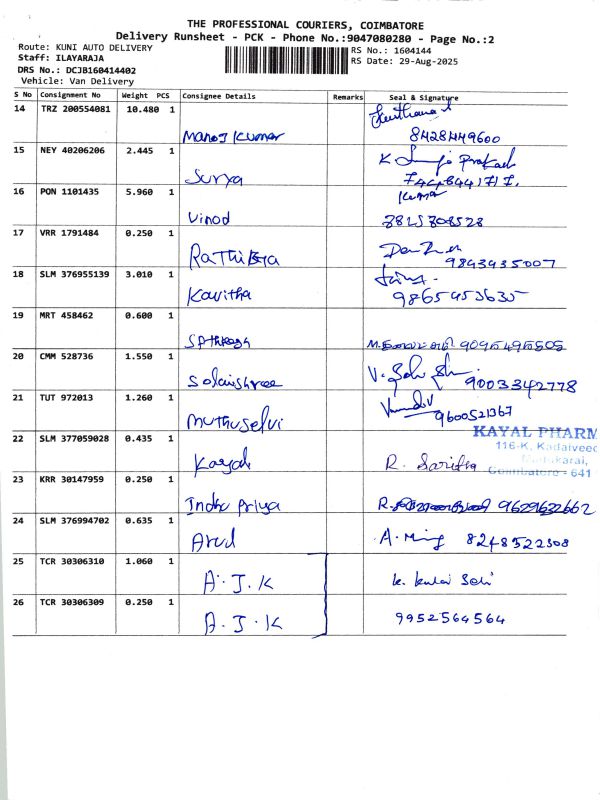 THE PROFESSIONAL COURIERS, COIMBATORE
Delivery Runsheet - PCK - Phone No.:9047080280 - Page No.:2
Route: KUNI AUTO DELIVERY
RS No.: 1604144
Staff: ILAYARAJA
RS Date: 29-Aug-2025
DRS No.: DCJB160414402
Vehicle: Van Delivery
S No Consignment No Weight PCS Consignee Details Remarks Seal & Signature
14 TRZ 200554081 10.480 1
Manoj Kumar 8428449600
15 NEY 40206206 2.445 1 K
Surya
16 PON 1101435 5.960 1 Kumar
Vinod
17 VRR 1791484 0.250 1
9843435007
18 SLM 376955139 3.010 1
Kavitha 9865453635
19 MRT 458462 0.600 1
9095495505
20 CMM 528736 1.550 1 V.
Solaishree 9003342778
21 TUT 972013 1.260 1
Muthuselvi 9600521367
KAYAL PHARM
22 SLM 377059028 0.435 1 116-K, Kadaiveed
Kayal R. Saritha
Coimbatore - 641
23 KRR 30147959 0.250 1
Indhu Priya R. 9629632662
24 SLM 376994702 0.635 1
Arul A. 8248522308
25 TCR 30306310 1.060 1
A. J. K K. Kalai Selvi
26 TCR 30306309 0.250 1 9952564564
A. J. K